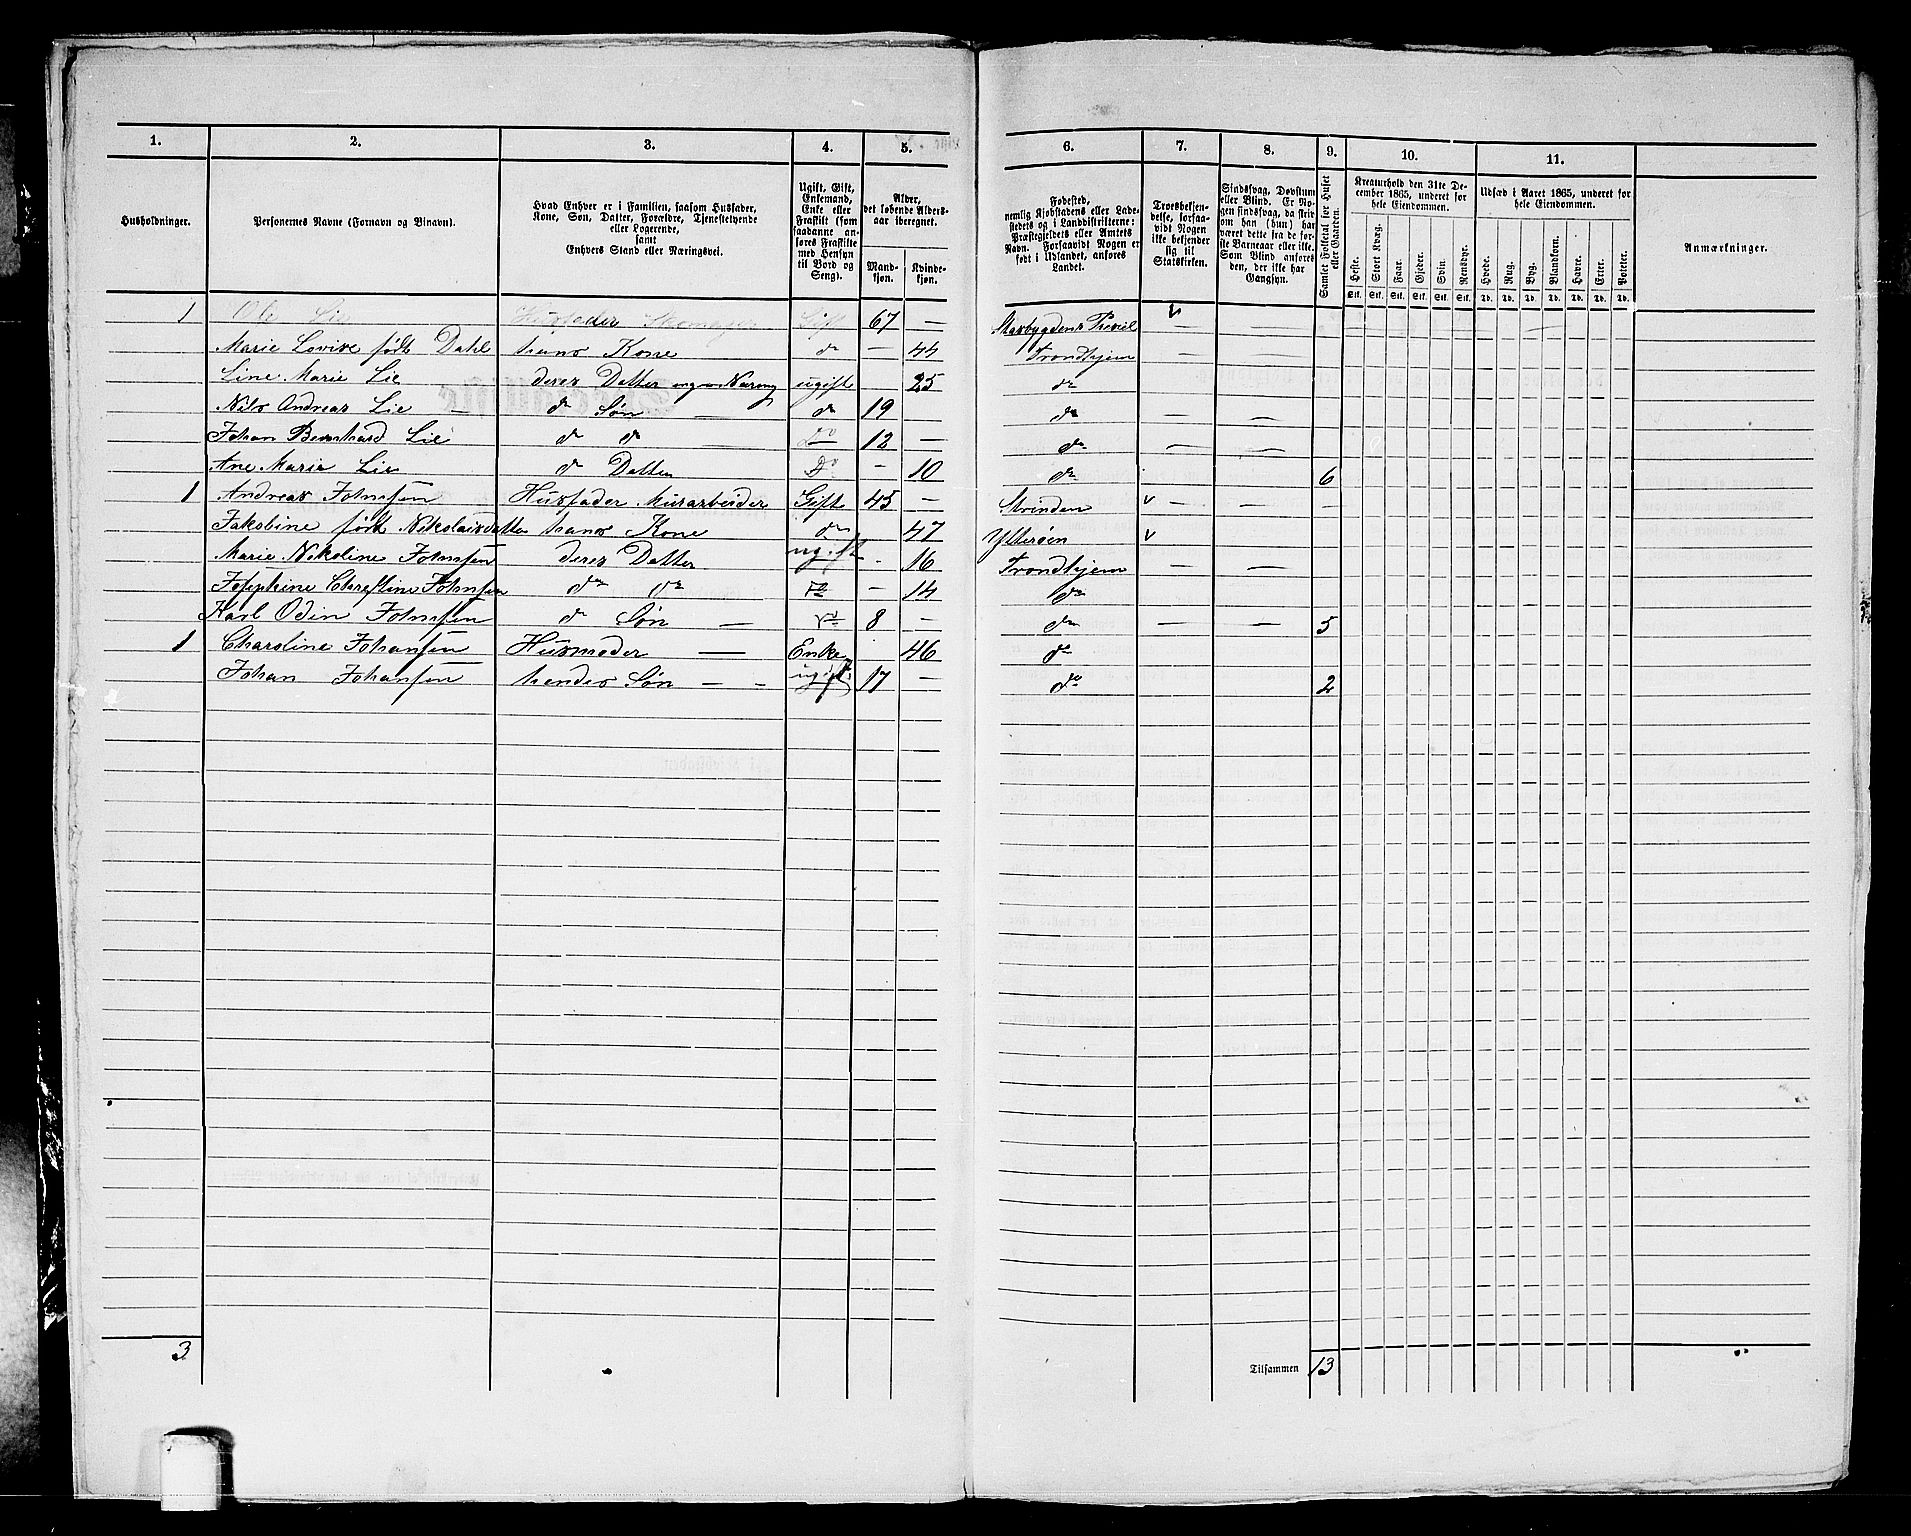 1. 2. 3. 4. 5. 6. 7. 8. 9. 10. 11.
Husholdninger.
Personernes Navne (Fornavn og Binavn).
Hvad Enhver er i Familien, saasom Husfader,
Kone, Søn, Datter, Forældre, Tjenestetyende
eller Logerende,
samt
Enhvers Stand eller Næringsvei.
Ugift, Gift,
Enkemand,
Enke eller
Fraskilt (som
saadanne an-
føres Fraskilte
med Hensyn
til Bord og
Seng).
Alder,
det løbende Alders-
aar iberegnet.
Mand-
kjøn.
Kvinde-
kjøn.
Fødested,
nemlig Kjøbstadens eller Lade-
stedets og i Landdistrikterne:
Præstegjeldets eller Amtets
Navn. Forsaavidt Nogen er
født i Udlandet, anføres
Landet.
Troesbekjen-
delse, forsaa-
vidt Nogen
ikke bekjender
sig til
Statskirken.
Sindssvag, Døvstum
eller Blind. Er No-
gen sindssvag, da skriv
om han (hun) har
været dette fra de før-
ste Barneaar eller ikke.
Som Blind anføres
den, der ikke har
Gangsyn.
Samlet Folketal for Huset
eller Gaarden.
Kreaturhold den 31te De-
cember 1865, underet for
hele Eiendommen.
Heste. Stort Kvæg. Faar. Gjeder. Svin. Rensdyr.
Stk. Stk. Stk. Stk. Stk. Stk.
Udsæd i Aaret 1865, underet for
hele Eiendommen.
Hvede. Rug. Byg. Blandkorn. Havre. Erter. Poteter.
Td. Td. Td. Td. Td. Td. Td.
Anmærkninger.
1 Ole Lie Husfader Gift 67 —
Marie Lovise født Dahl hans Kone do — 44 Trondhjem — —
Line Marie Lie deres Datter ugift 25 do
Nils Andreas Lie — do Søn — do 19 do — —
Johan Bernhard Lie do do — Do 12 — do — —
Ane Marie Lie do Datter Do – 10 do 6
1 Andreas Johnsen Husfader Murarbeider Gift 45 — Strinden v — — —
Jakobine født Nikolaisdatter hans Kone do 47 Ytterøen v
Marie Nikoline Johnsen deres Datter ugift - 16 Trondhjem — —
Josephine Christine Johnsen do do do – 14 do
Karl Odin Johnsen do Søn — do 8 – do — — 5
1 Charoline Johansen Husmoder — Enke 46 do
Johan Johansen hendes Søn — - ugift 17 – do 2
3 Tilsammen 13